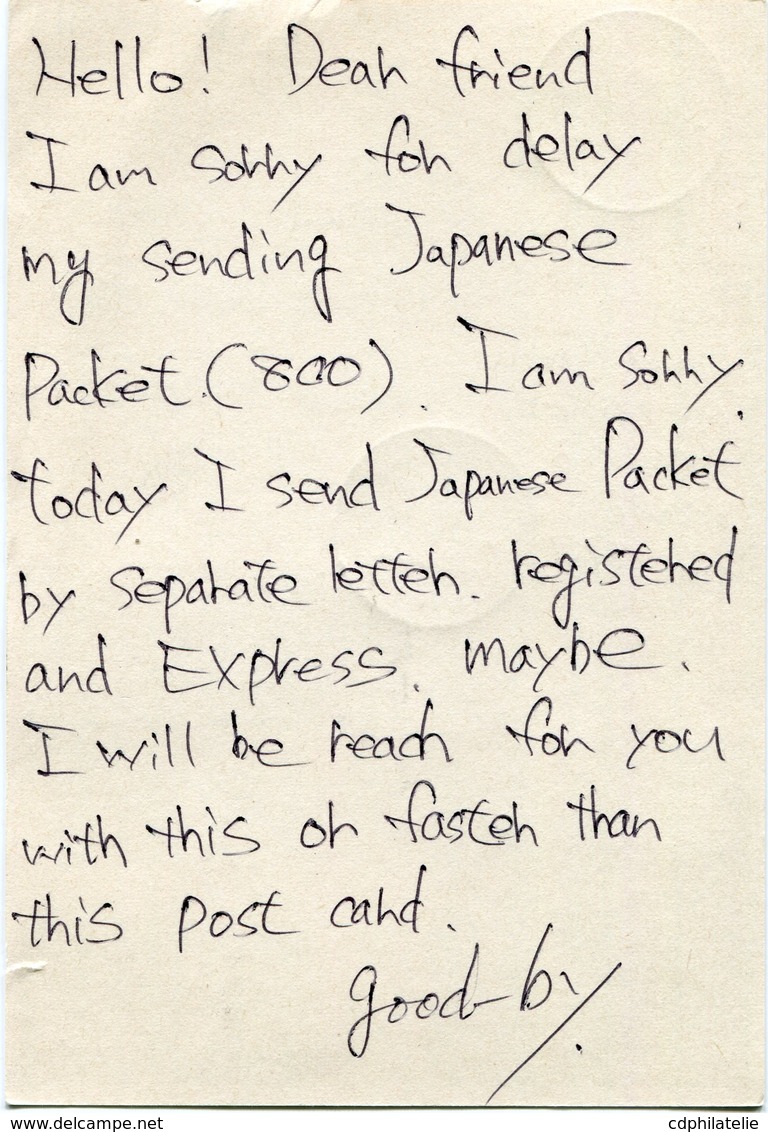 Hello! Dear friend
I am sorry for delay
my sending Japanese
Packet.(800). I am sorry.
today I send Japanese Packet
by separate letter. registered
and Express. maybe.
I will be reach for you
with this or faster than
this post card.
good-by.
www.delcampe.net
cdphilatelie